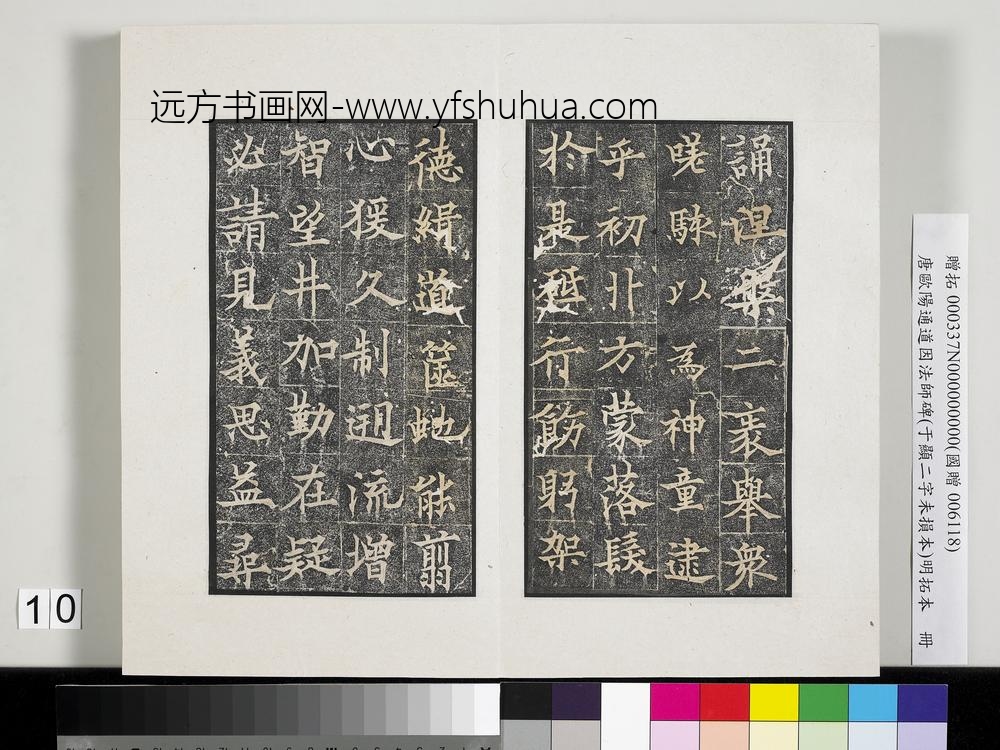 远方书画网-www.yfshuhua.com
誦涅槃二袠舉衆
嗟駭以為神童逮
乎初丱方蒙落髮
於是砥行飭躬架
德緝道篋虵能翦
心猨久制迴流增
智望井加勤在疑
必請見義思益尋
贈拓 000337N000000000(國贈 006118)
唐歐陽通道因法師碑(于顯二字未損本)明拓本 冊
10